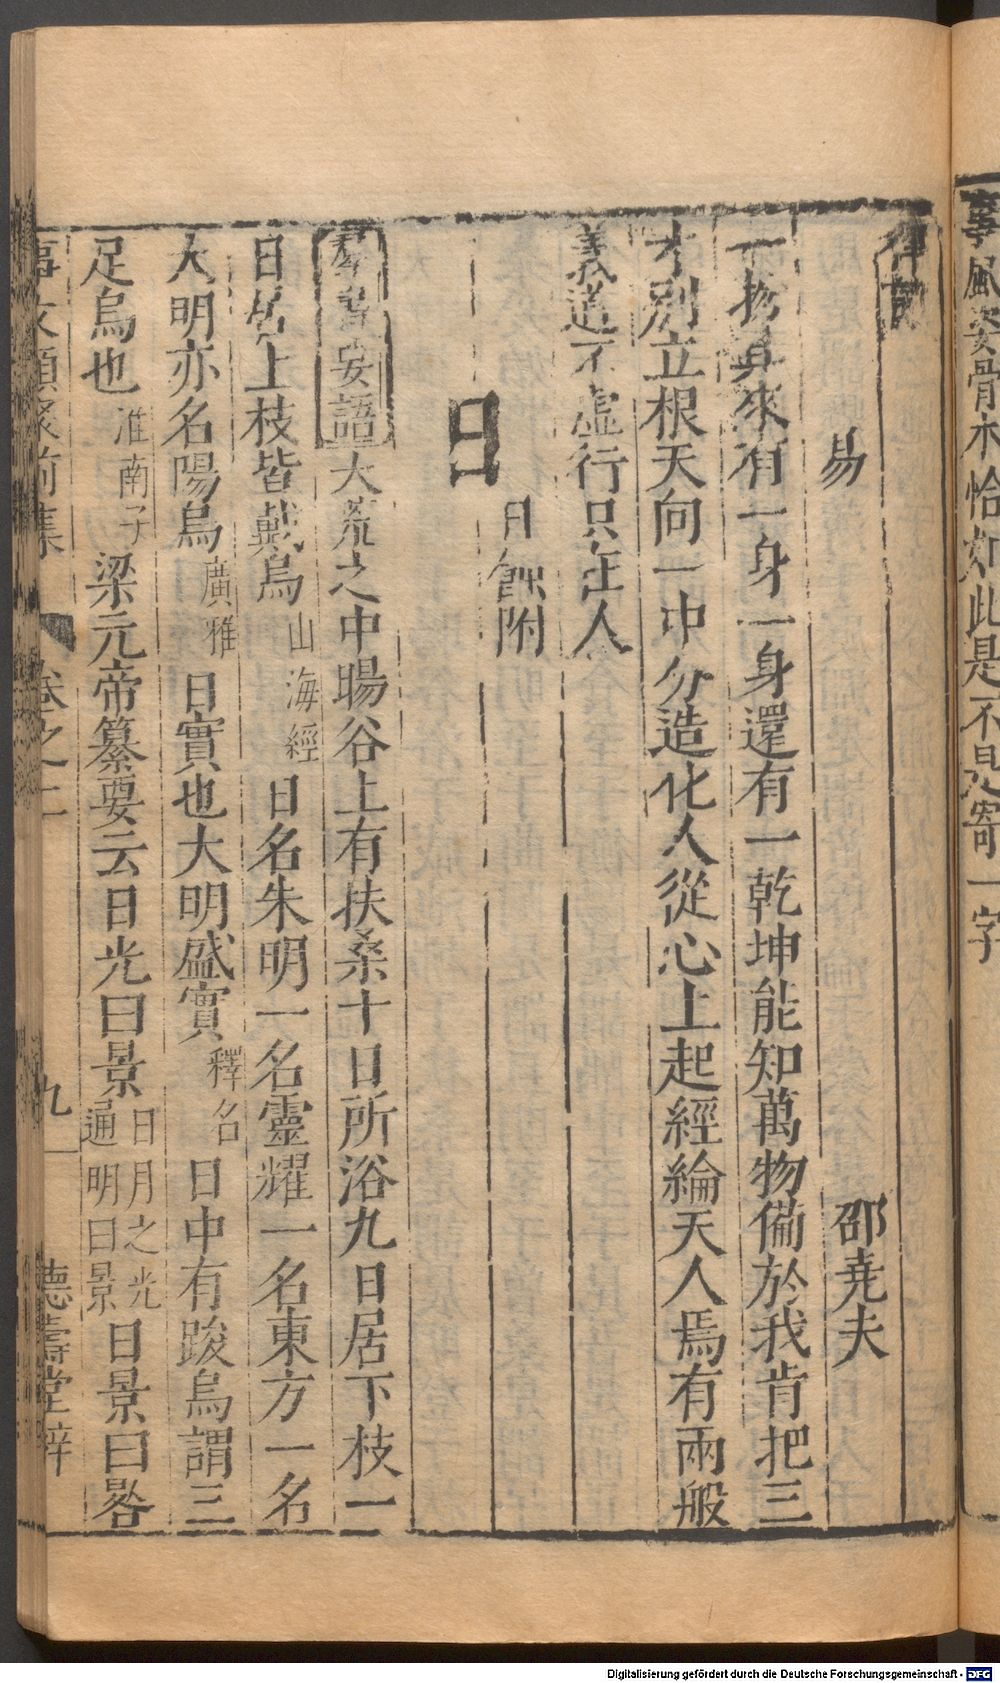 事風姿骨木恰如此是不是寄一字
律詩
易 邵堯夫
一物其來有一身一身還有一乾坤能知萬物備於我肯把三
才別立根天向一中分造化人從心上起經綸天人焉有兩般
義道不虛行只在人
日蝕附
日
羣書要語大荒之中暘谷上有扶桑十日所浴九日居下枝一
日居上枝皆戴烏山海經日名朱明一名靈耀一名東方一名
大明亦名陽烏廣雅日實也大明盛實釋名日中有踆烏謂三
足烏也淮南子梁元帝纂要云日光曰景日月之光通明曰景日景曰晷
事文類聚前集 卷之二 九 德壽堂梓
Digitalisierung gefördert durch die Deutsche Forschungsgemeinschaft - DFG